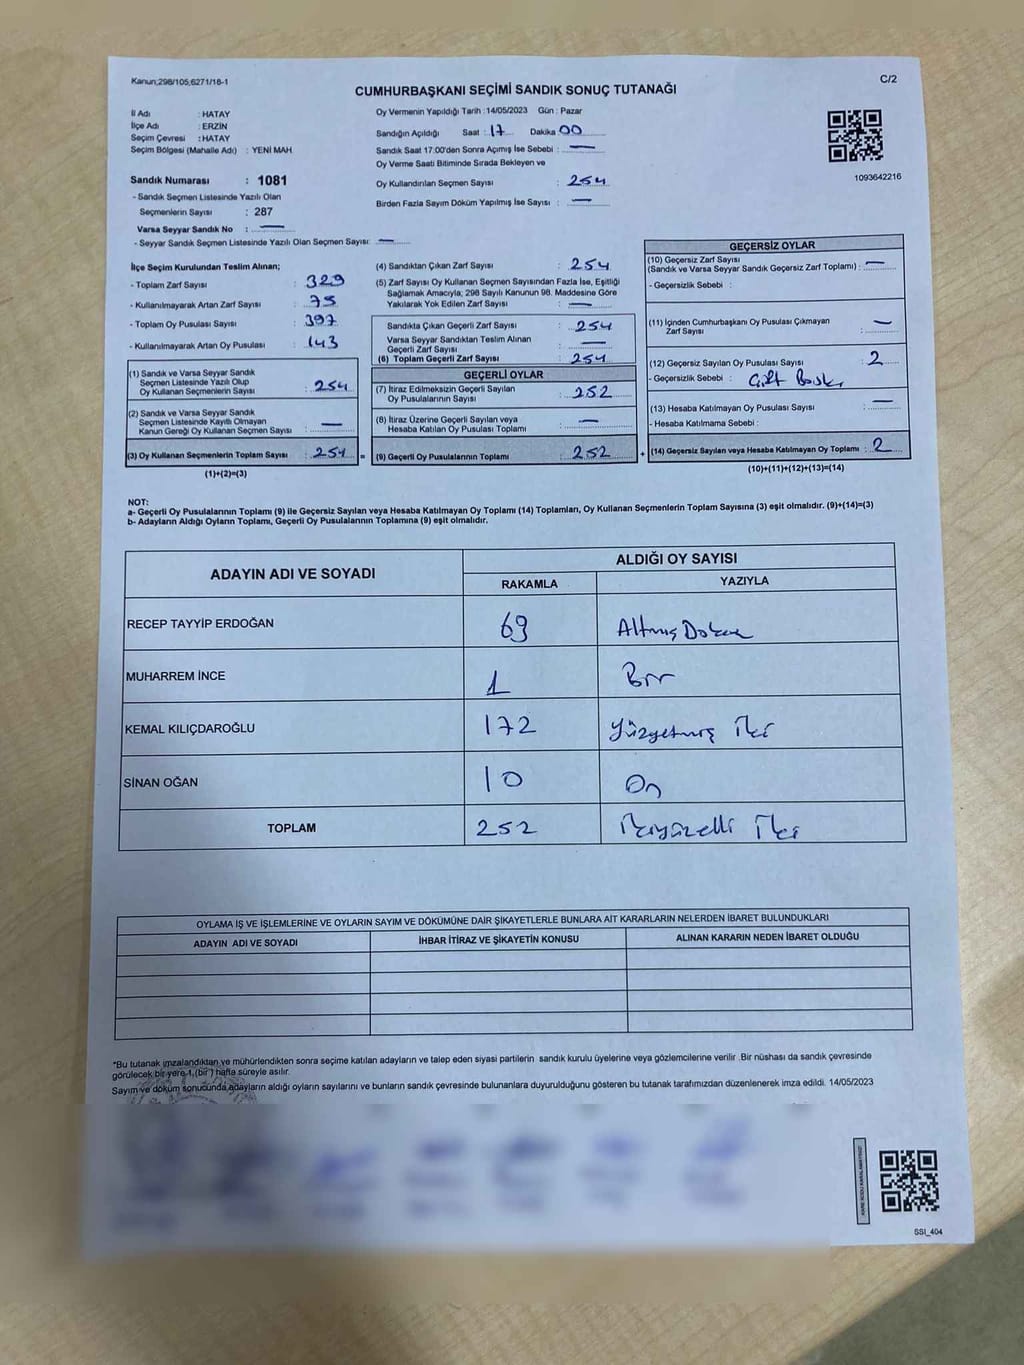 Kanun;298/105;6271/16-1
C/2
CUMHURBAŞKANI SEÇİMİ SANDIK SONUÇ TUTANAĞI
İl Adı : HATAY
İlçe Adı : ERZİN
Seçim Çevresi : HATAY
Seçim Bölgesi (Mahalle Adı) : YENİ MAH
Sandık Numarası : 1081
- Sandık Seçmen Listesinde Yazılı Olan
Seçmenlerin Sayısı : 287
Varsa Seyyar Sandık No : —
- Seyyar Sandık Seçmen Listesinde Yazılı Olan Seçmen Sayısı: —
Oy Vermenin Yapıldığı Tarih :14/05/2023 Gün : Pazar
Sandığın Açıldığı Saat : 17 Dakika 00
Sandık Saat 17:00'den Sonra Açımış İse Sebebi : —
Oy Verme Saati Bitiminde Sırada Bekleyen ve
Oy Kullandırılan Seçmen Sayısı : 254
Birden Fazla Sayım Döküm Yapılmış İse Sayısı : —
1093642216
İlçe Seçim Kurulundan Teslim Alınan;
- Toplam Zarf Sayısı : 329
- Kullanılmayarak Artan Zarf Sayısı : 75
- Toplam Oy Pusulası Sayısı : 397
- Kullanılmayarak Artan Oy Pusulası : 143
(1) Sandık ve Varsa Seyyar Sandık
Seçmen Listesinde Yazılı Olup
Oy Kullanan Seçmenlerin Sayısı : 254
(2) Sandık ve Varsa Seyyar Sandık
Seçmen Listesinde Kayıtlı Olmayan
Kanun Gereği Oy Kullanan Seçmen Sayısı : —
(3) Oy Kullanan Seçmenlerin Toplam Sayısı : 254 =
(1)+(2)=(3)
(4) Sandıktan Çıkan Zarf Sayısı : 254
(5) Zarf Sayısı Oy Kullanan Seçmen Sayısından Fazla İse, Eşitliği
Sağlamak Amacıyla; 298 Sayılı Kanunun 98. Maddesine Göre
Yakılarak Yok Edilen Zarf Sayısı : —
Sandıkta Çıkan Geçerli Zarf Sayısı : 254
Varsa Seyyar Sandıktan Teslim Alınan
Geçerli Zarf Sayısı : —
(6) Toplam Geçerli Zarf Sayısı : 254
GEÇERLİ OYLAR
(7) İtiraz Edilmeksizin Geçerli Sayılan
Oy Pusulalarının Sayısı : 252
(8) İtiraz Üzerine Geçerli Sayılan veya
Hesaba Katılan Oy Pusulası Toplamı : —
(9) Geçerli Oy Pusulalarının Toplamı : 252 +
GEÇERSİZ OYLAR
(10) Geçersiz Zarf Sayısı
(Sandık ve Varsa Seyyar Sandık Geçersiz Zarf Toplamı) : —
- Geçersizlik Sebebi :
(11) İçinden Cumhurbaşkanı Oy Pusulası Çıkmayan
Zarf Sayısı : —
(12) Geçersiz Sayılan Oy Pusulası Sayısı : 2
- Geçersizlik Sebebi : Çift Baskı
(13) Hesaba Katılmayan Oy Pusulası Sayısı : —
- Hesaba Katılmama Sebebi :
(14) Geçersiz Sayılan veya Hesaba Katılmayan Oy Toplamı : 2
(10)+(11)+(12)+(13)=(14)
NOT:
a- Geçerli Oy Pusulalarının Toplamı (9) ile Geçersiz Sayılan veya Hesaba Katılmayan Oy Toplamı (14) Toplamları, Oy Kullanan Seçmenlerin Toplam Sayısına (3) eşit olmalıdır. (9)+(14)=(3)
b- Adayların Aldığı Oyların Toplamı, Geçerli Oy Pusulalarının Toplamına (9) eşit olmalıdır.
ADAYIN ADI VE SOYADI
ALDIĞI OY SAYISI
RAKAMLA YAZIYLA
RECEP TAYYİP ERDOĞAN 69 Altmış Dokuz
MUHARREM İNCE 1 Bir
KEMAL KILIÇDAROĞLU 172 Yüzyetmiş İki
SİNAN OĞAN 10 On
TOPLAM 252 İkiyüzelli İki
OYLAMA İŞ VE İŞLEMLERİNE VE OYLARIN SAYIM VE DÖKÜMÜNE DAİR ŞİKAYETLERLE BUNLARA AİT KARARLARIN NELERDEN İBARET BULUNDUKLARI
ADAYIN ADI VE SOYADI İHBAR İTİRAZ VE ŞİKAYETİN KONUSU ALINAN KARARIN NEDEN İBARET OLDUĞU
*Bu tutanak imzalandıktan ve mühürlendikten sonra seçime katılan adayların ve talep eden siyasi partilerin sandık kurulu üyelerine veya gözlemcilerine verilir .Bir nüshası da sandık çevresinde
görülecek bir yere 1,(bir ) hafta süreyle asılır.
Sayım ve döküm sonucunda,adayların aldığı oyların sayılarını ve bunların sandık çevresinde bulunanlara duyurulduğunu gösteren bu tutanak tarafımızdan düzenlenerek imza edildi. 14/05/2023
KARE KODU KARALAMAYINIZ!
SSI_404